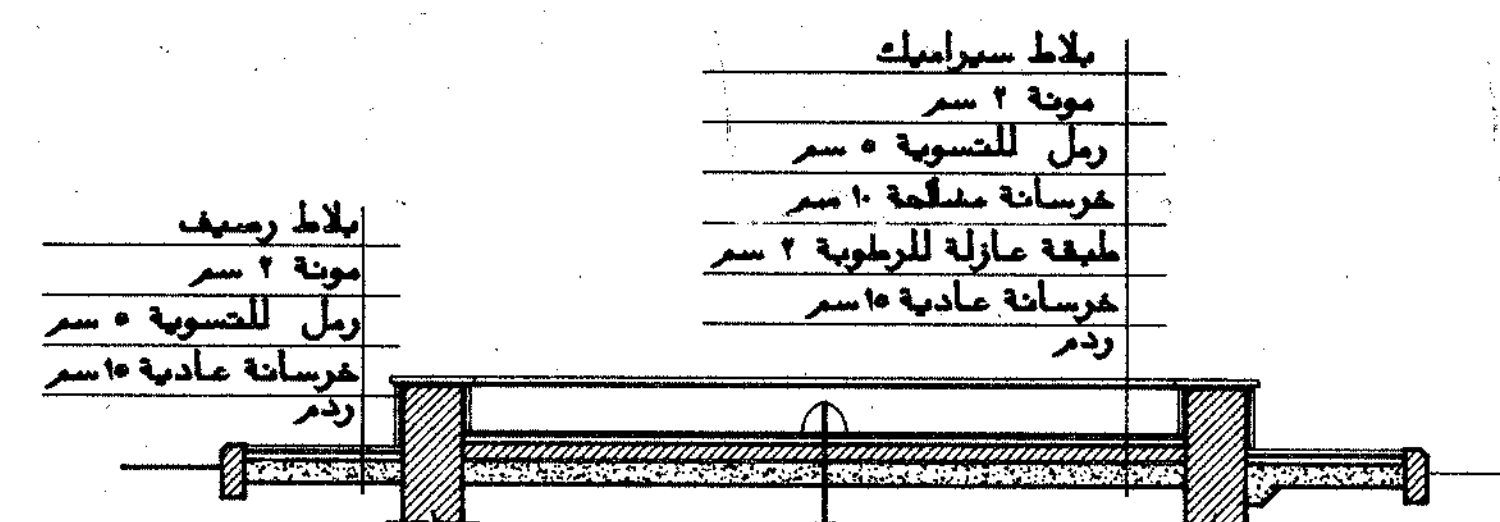 بلاط سيراميك
مونة ٢ سم
رمل للتسوية ٥ سم
خرسانة مسلحة ١٠ سم
طبقة عازلة للرطوبة ٢ سم
خرسانة عادية ١٥ سم
ردم
بلاط رصيف
مونة ٢ سم
رمل للتسوية ٥ سم
خرسانة عادية ١٥ سم
ردم